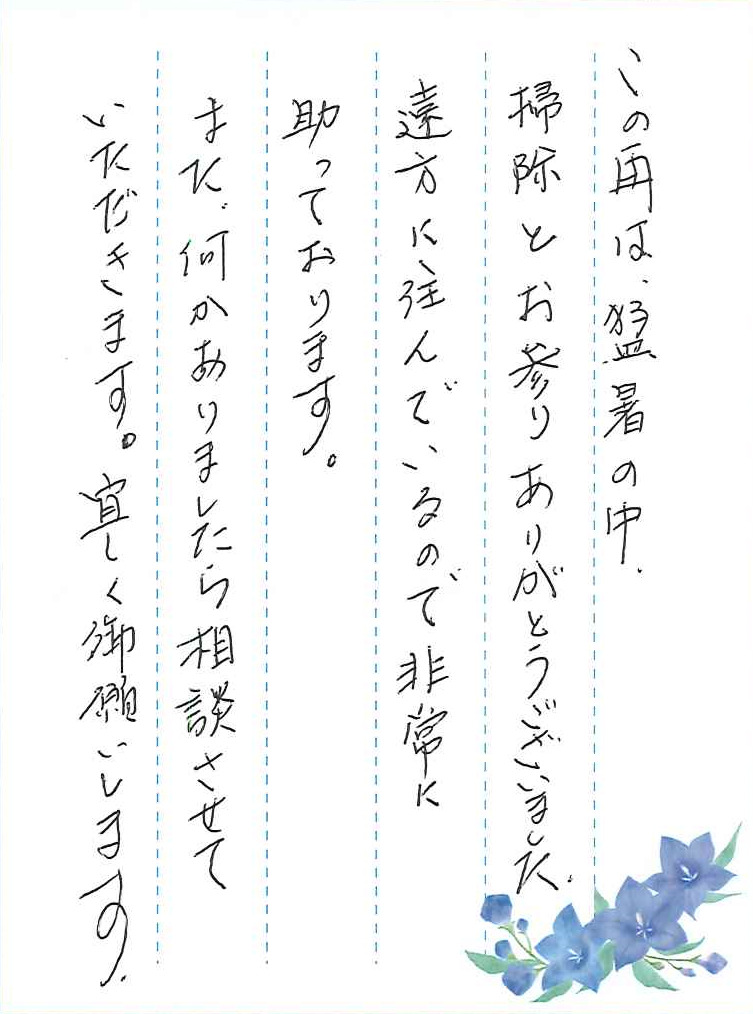 この再は、猛暑の中、
掃除とお参りありがとうございました。
遠方に住んでいるので非常に
助っております。
また、何かありましたら相談させて
いただきます。宜しく御願いします。